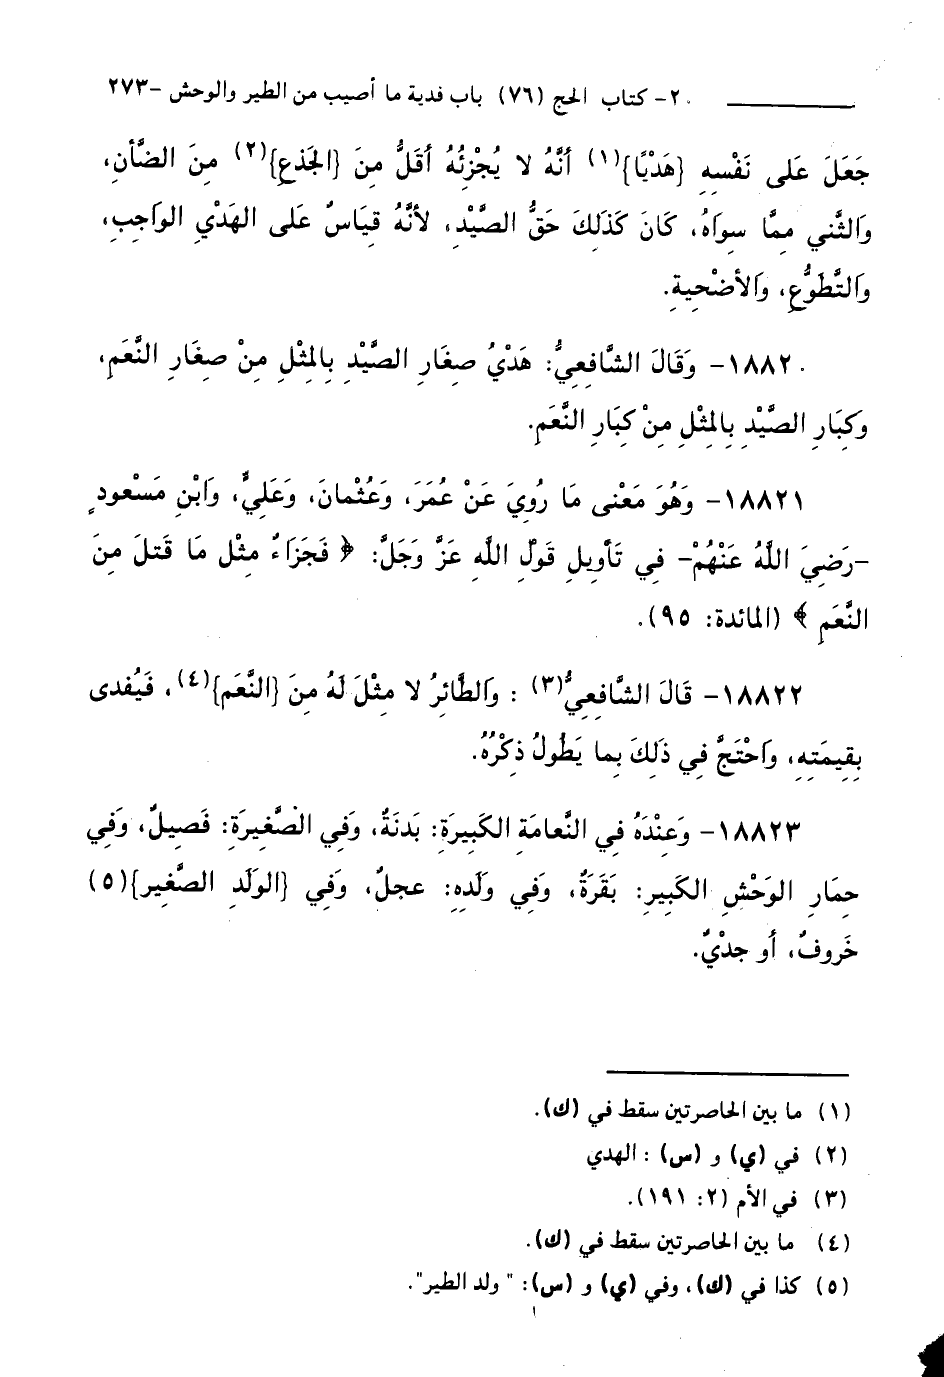 ٢٠- كتاب الحج (٧٦) باب فدية ما أصيب من الطير والوحش -٢٧٣
جَعَلَ عَلى نَفْسِهِ {هَدْيًا}(١) أَنَّهُ لا يُجْزِئُهُ أَقَلُّ مِنَ {الجَذعِ}(٢) مِنَ الضَّأنِ،
وَالثَّنِي مِمَّا سِوَاهُ، كَانَ كَذَلِكَ حَقُّ الصَّيْدِ، لأنَّهُ قِيَاسٌ عَلى الهَدْيِ الوَاجِبِ،
وَالتَّطَوُّعِ، وَالأضْحِيةِ.
١٨٨٢٠- وَقَالَ الشَّافِعِيُّ: هَدْيُ صِغَارِ الصَّيْدِ بِالمِثْلِ مِنْ صِغَارِ النَّعَمِ،
وَكِبَارِ الصَّيْدِ بِالمِثْلِ مِنْ كِبَارِ النَّعَمِ.
١٨٨٢١- وَهُوَ مَعْنى مَا رُوِيَ عَنْ عُمَرَ، وَعُثْمانَ، وَعَلِيٍّ، وَابْنِ مَسْعودٍ
-رَضِيَ اللَّهُ عَنْهُمْ- فِي تَأوِيلِ قَولِ اللَّهِ عَزَّ وَجَلَّ: ﴿ فَجَزَاءٌ مِثْل مَا قَتلَ مِنَ
النَّعَمِ ﴾ (المائدة: ٩٥).
١٨٨٢٢- قَالَ الشَّافِعِيُّ(٣) : وَالطَّائِرُ لا مِثْلَ لَهُ مِنَ {النَّعَمِ}(٤)، فَيُفدى
بِقِيمَتِهِ، وَاحْتَجَّ فِي ذَلِكَ بِما يَطُولُ ذِكْرُهُ.
١٨٨٢٣- وَعِنْدَهُ فِي النَّعامَةِ الكَبِيرَةِ: بَدَنَةٌ، وَفِي الصَّغِيرَةِ: فَصِيلٌ، وَفِي
حِمَارِ الوَحْشِ الكَبِيرِ: بَقَرَةٌ، وَفِي وَلَدِهِ: عِجلٌ، وَفِي {الوَلَدِ الصَّغِيرِ}(٥)
خَروفٌ، أو جدْيٌ.
(١) ما بين الحاصرتين سقط في (ك).
(٢) في (ي) و (س) : الهدي
(٣) في الأم (٢: ١٩١).
(٤) ما بين الحاصرتين سقط في (ك).
(٥) كذا في (ك)، وفي (ي) و (س): " ولد الطير".